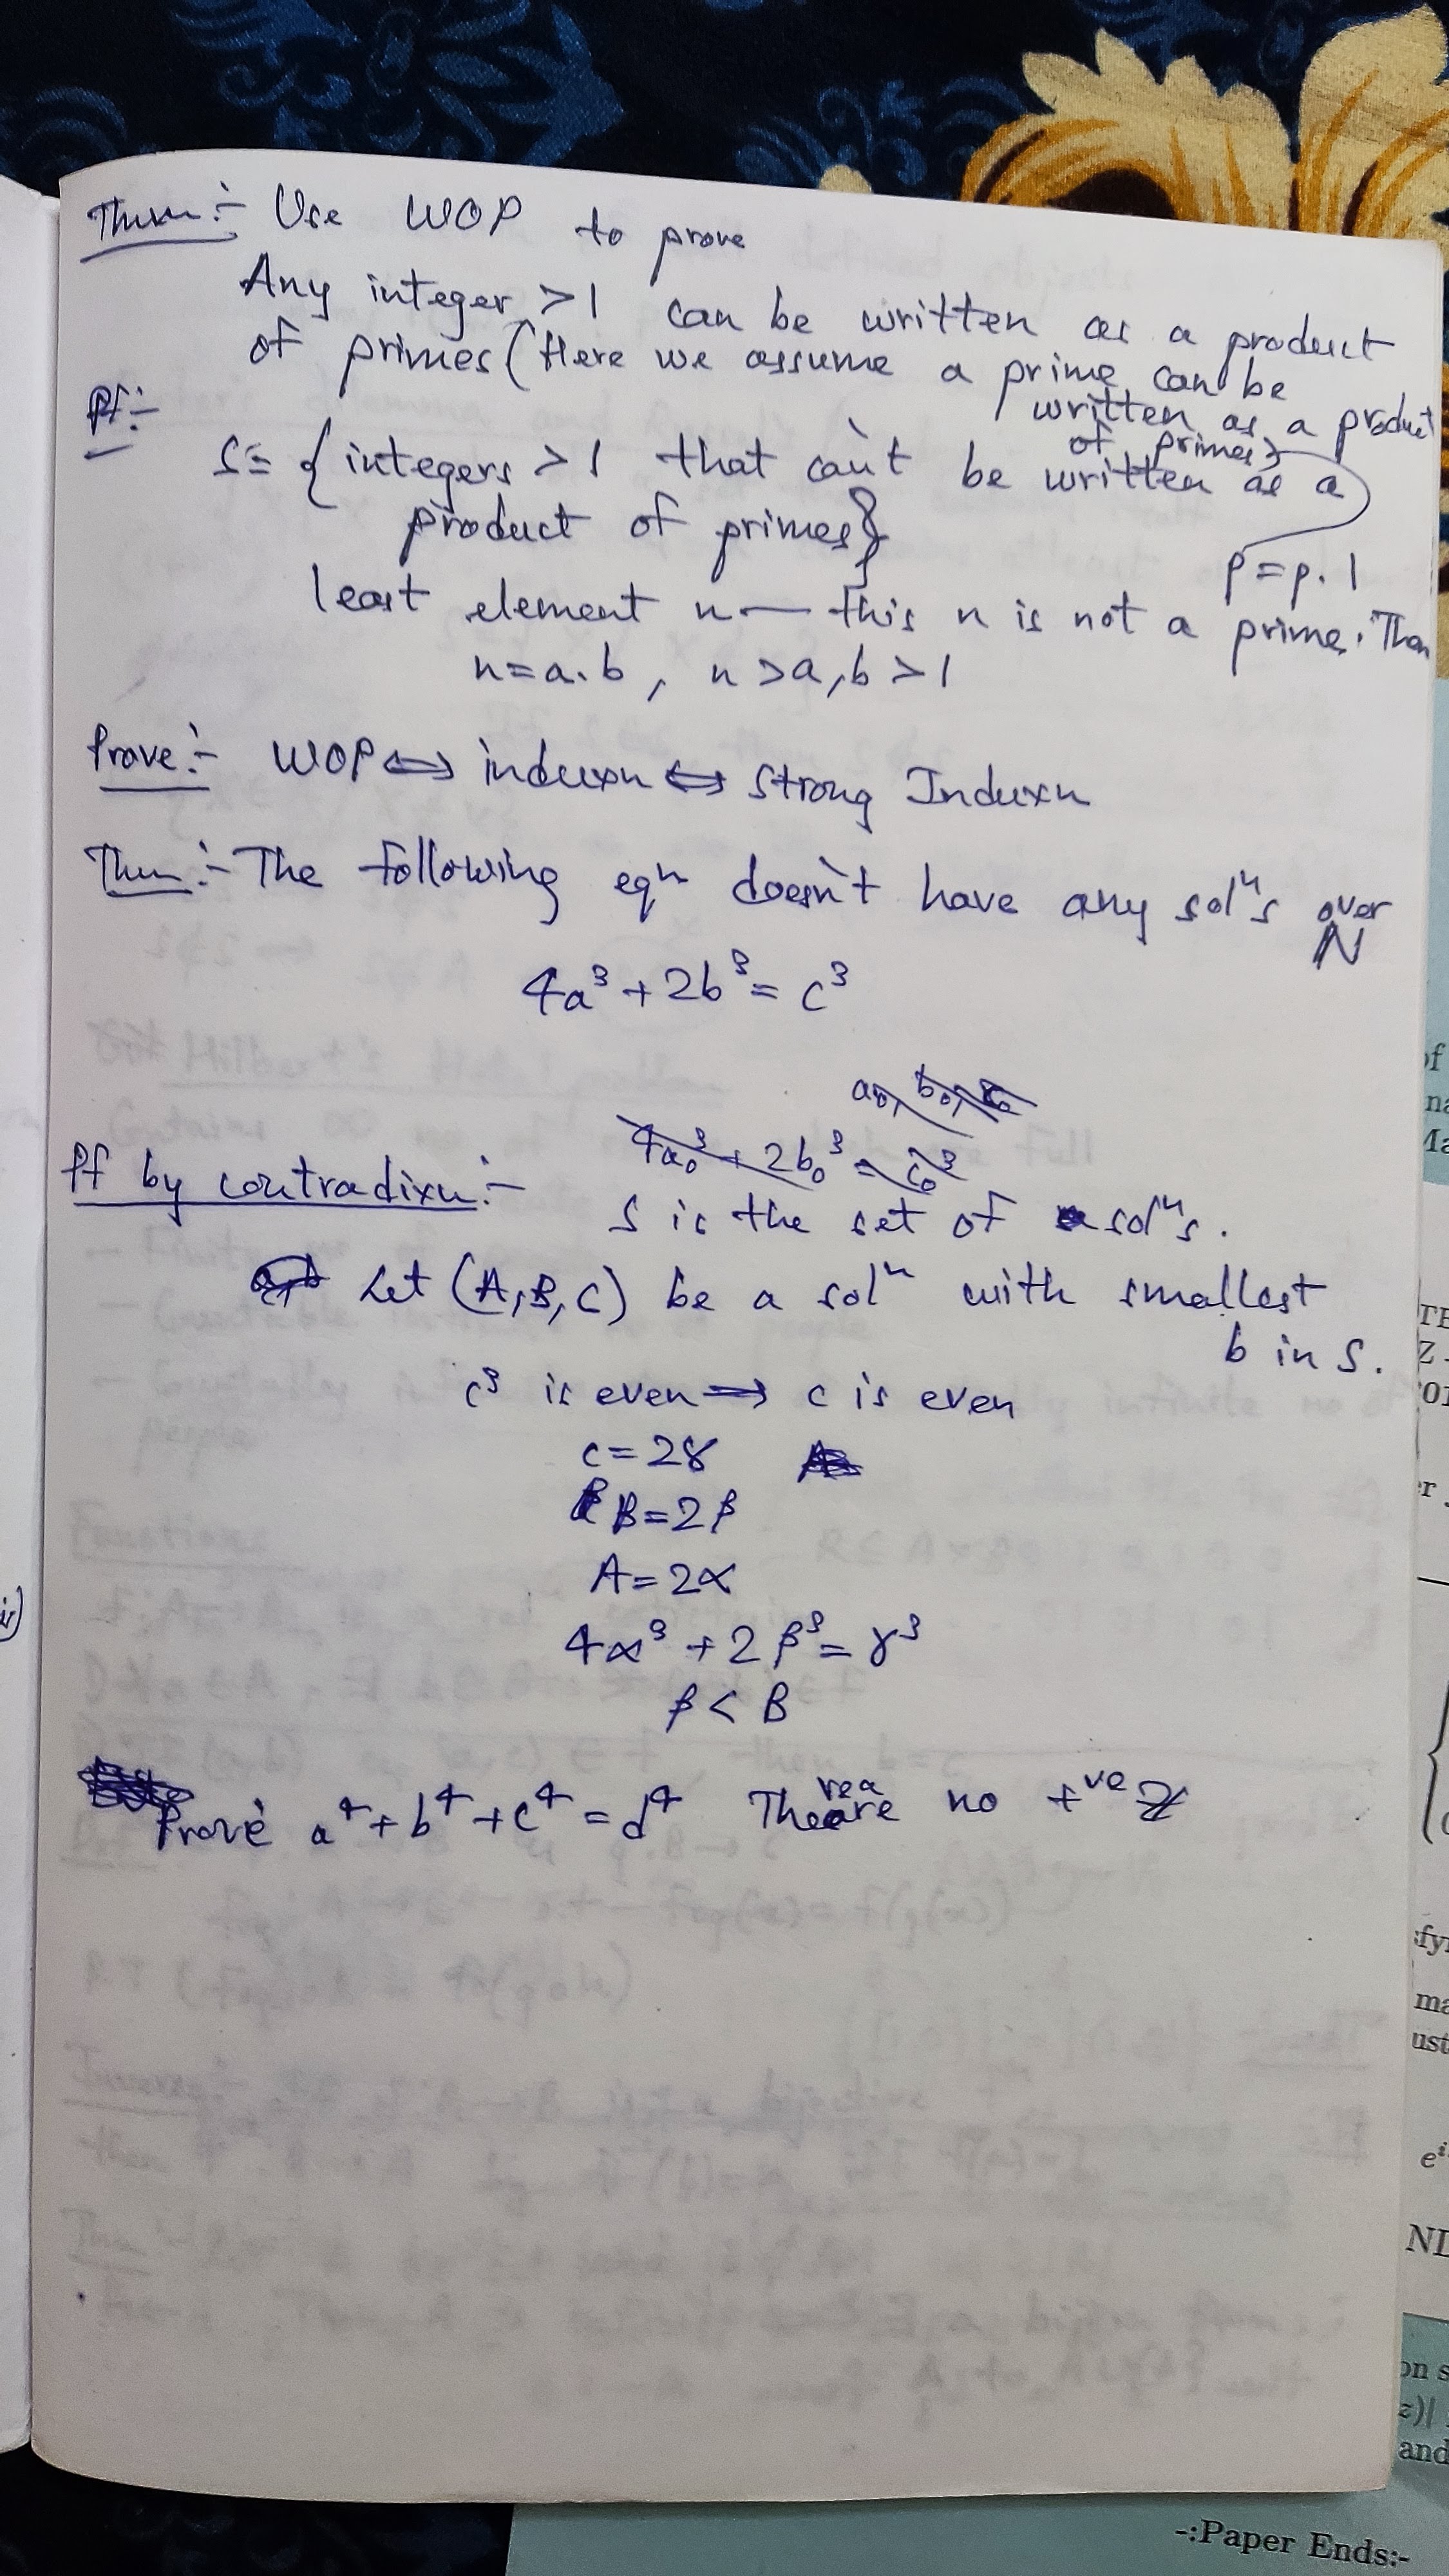 Thm:- Use WOP to prove
Any integer >1 can be written as a product
of primes (Here we assume a prime can be
written as a product
of primes)
Pf:-
S= {integers >1 that can't be written as a
product of primes}
p=p.1
least element n — this n is not a prime. Then
n=a.b, n>a,b>1
Prove:- WOP⇔ induxn ⇔ Strong Induxn
Thm:- The following eqⁿ doesn't have any solⁿs over
ℕ
4a³+2b³=c³
a₀, b₀, c₀
4a₀³+2b₀³=c₀³
Pf by contradixn:-
S is the set of solⁿs.
Let (A,B,C) be a solⁿ with smallest
b in S.
c³ is even⇒ c is even
c=2γ
B=2β
A=2α
4α³+2β³=γ³
β<B
Prove a⁴+b⁴+c⁴=d⁴ There are no +ve ℤ
of
na
Ma
TE
Z -
r
fy
ma
ust
NI
on s
z)|
and
-:Paper Ends:-